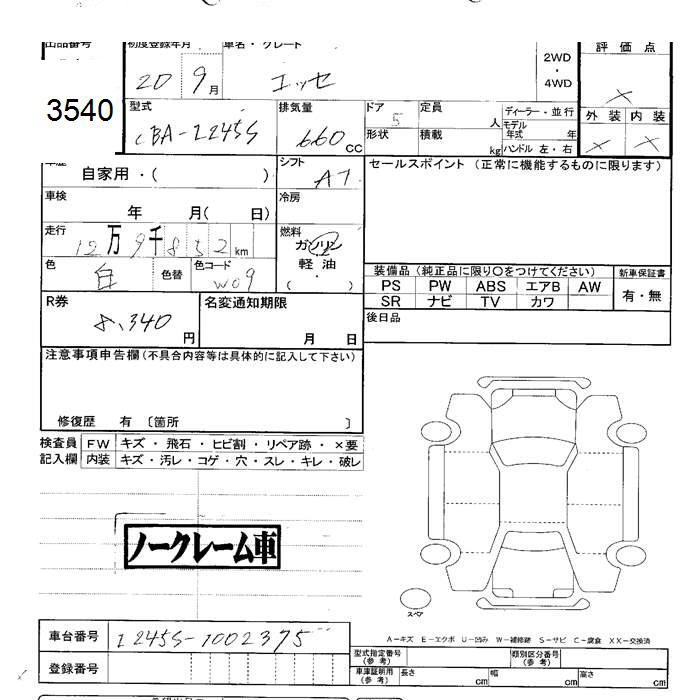 出品番号 初度登録年月 車名・グレード 2WD・4WD 評価点
20 9月 エッセ ×
3540
型式 排気量 ドア 定員 ディーラー・並行 外装 内装
CBA-L245S 660cc 5 人 モデル年式 年 × ×
形状 積載 kg ハンドル 左・右
車歴 自家用・( ) シフト AT セールスポイント (正常に機能するものに限ります)
車検 年 月( 日) 冷房
走行 12万9千832km 燃料 ガソリン 軽油 ・ ( )
色 白 色替 色コード W09
装備品 (純正品に限り〇をつけてください) 新車保証書
PS PW ABS エアB AW 有・無
SR ナビ TV カワ
R券 8,340円 名変通知期限 月 日
後日品
注意事項申告欄(不具合内容等は具体的に記入して下さい)
修復歴 有 〔箇所 〕
検査員記入欄 FW キズ・飛石・ヒビ割・リペア跡・×要
内装 キズ・汚レ・コゲ・穴・スレ・キレ・破レ
ノークレーム車
スペア
A-キズ E-エクボ U-凹み W-補修跡 S-サビ C-腐食 XX-交換済
車台番号 L245S-1002375
登録番号
型式指定番号(参考) 類別区分番号(参考)
車庫証明用(参考) 長さ cm 幅 cm 高さ cm